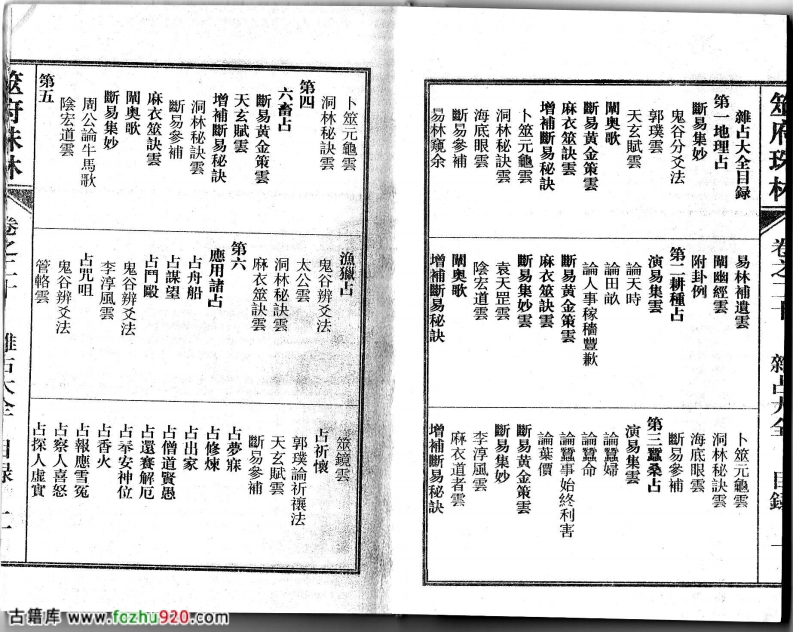 筮府珠林
卷之二十
雜占大全
目錄
一
雜占大全目錄
第一地理占
斷易集妙
鬼谷分爻法
郭璞雲
天玄賦雲
闡奧歌
斷易黃金策雲
麻衣筮訣雲
增補斷易秘訣
卜筮元龜雲
洞林秘訣雲
海底眼雲
斷易參補
易林窺余
易林補遺雲
闡幽經雲
附卦例
第二耕種占
演易集雲
論天時
論田畝
論人事稼穡豐歉
斷易黃金策雲
麻衣筮訣雲
斷易集妙雲
袁天罡雲
陰宏道雲
闡奧歌
增補斷易秘訣
卜筮元龜雲
洞林秘訣雲
海底眼雲
斷易參補
第三蠶桑占
演易集雲
論蠶婦
論蠶命
論蠶事始終利害
論葉價
斷易黃金策雲
斷易集妙
李淳風雲
麻衣道者雲
增補斷易秘訣
卜筮元龜雲
洞林秘訣雲
第四
六畜占
斷易黃金策雲
天玄賦雲
增補斷易秘訣
洞林秘訣雲
斷易參補
麻衣筮訣雲
闡奧歌
斷易集妙
周公論牛馬歌
陰宏道雲
第五
漁獵占
鬼谷辨爻法
太公雲
洞林秘訣雲
麻衣筮訣雲
第六
應用諸占
占舟船
占謀望
占鬥毆
鬼谷辨爻法
李淳風雲
占咒咀
鬼谷辨爻法
管輅雲
筮鏡雲
占祈懷
郭璞論祈禳法
天玄賦雲
斷易參補
占夢寐
占修煉
占出家
占僧道賢愚
占還賽解厄
占奉安神位
占香火
占報應雪冤
占察人喜怒
占探人虛實
筮府珠林
卷之二十
雜占大全
目錄
二
古籍库 www.fozhu920.com